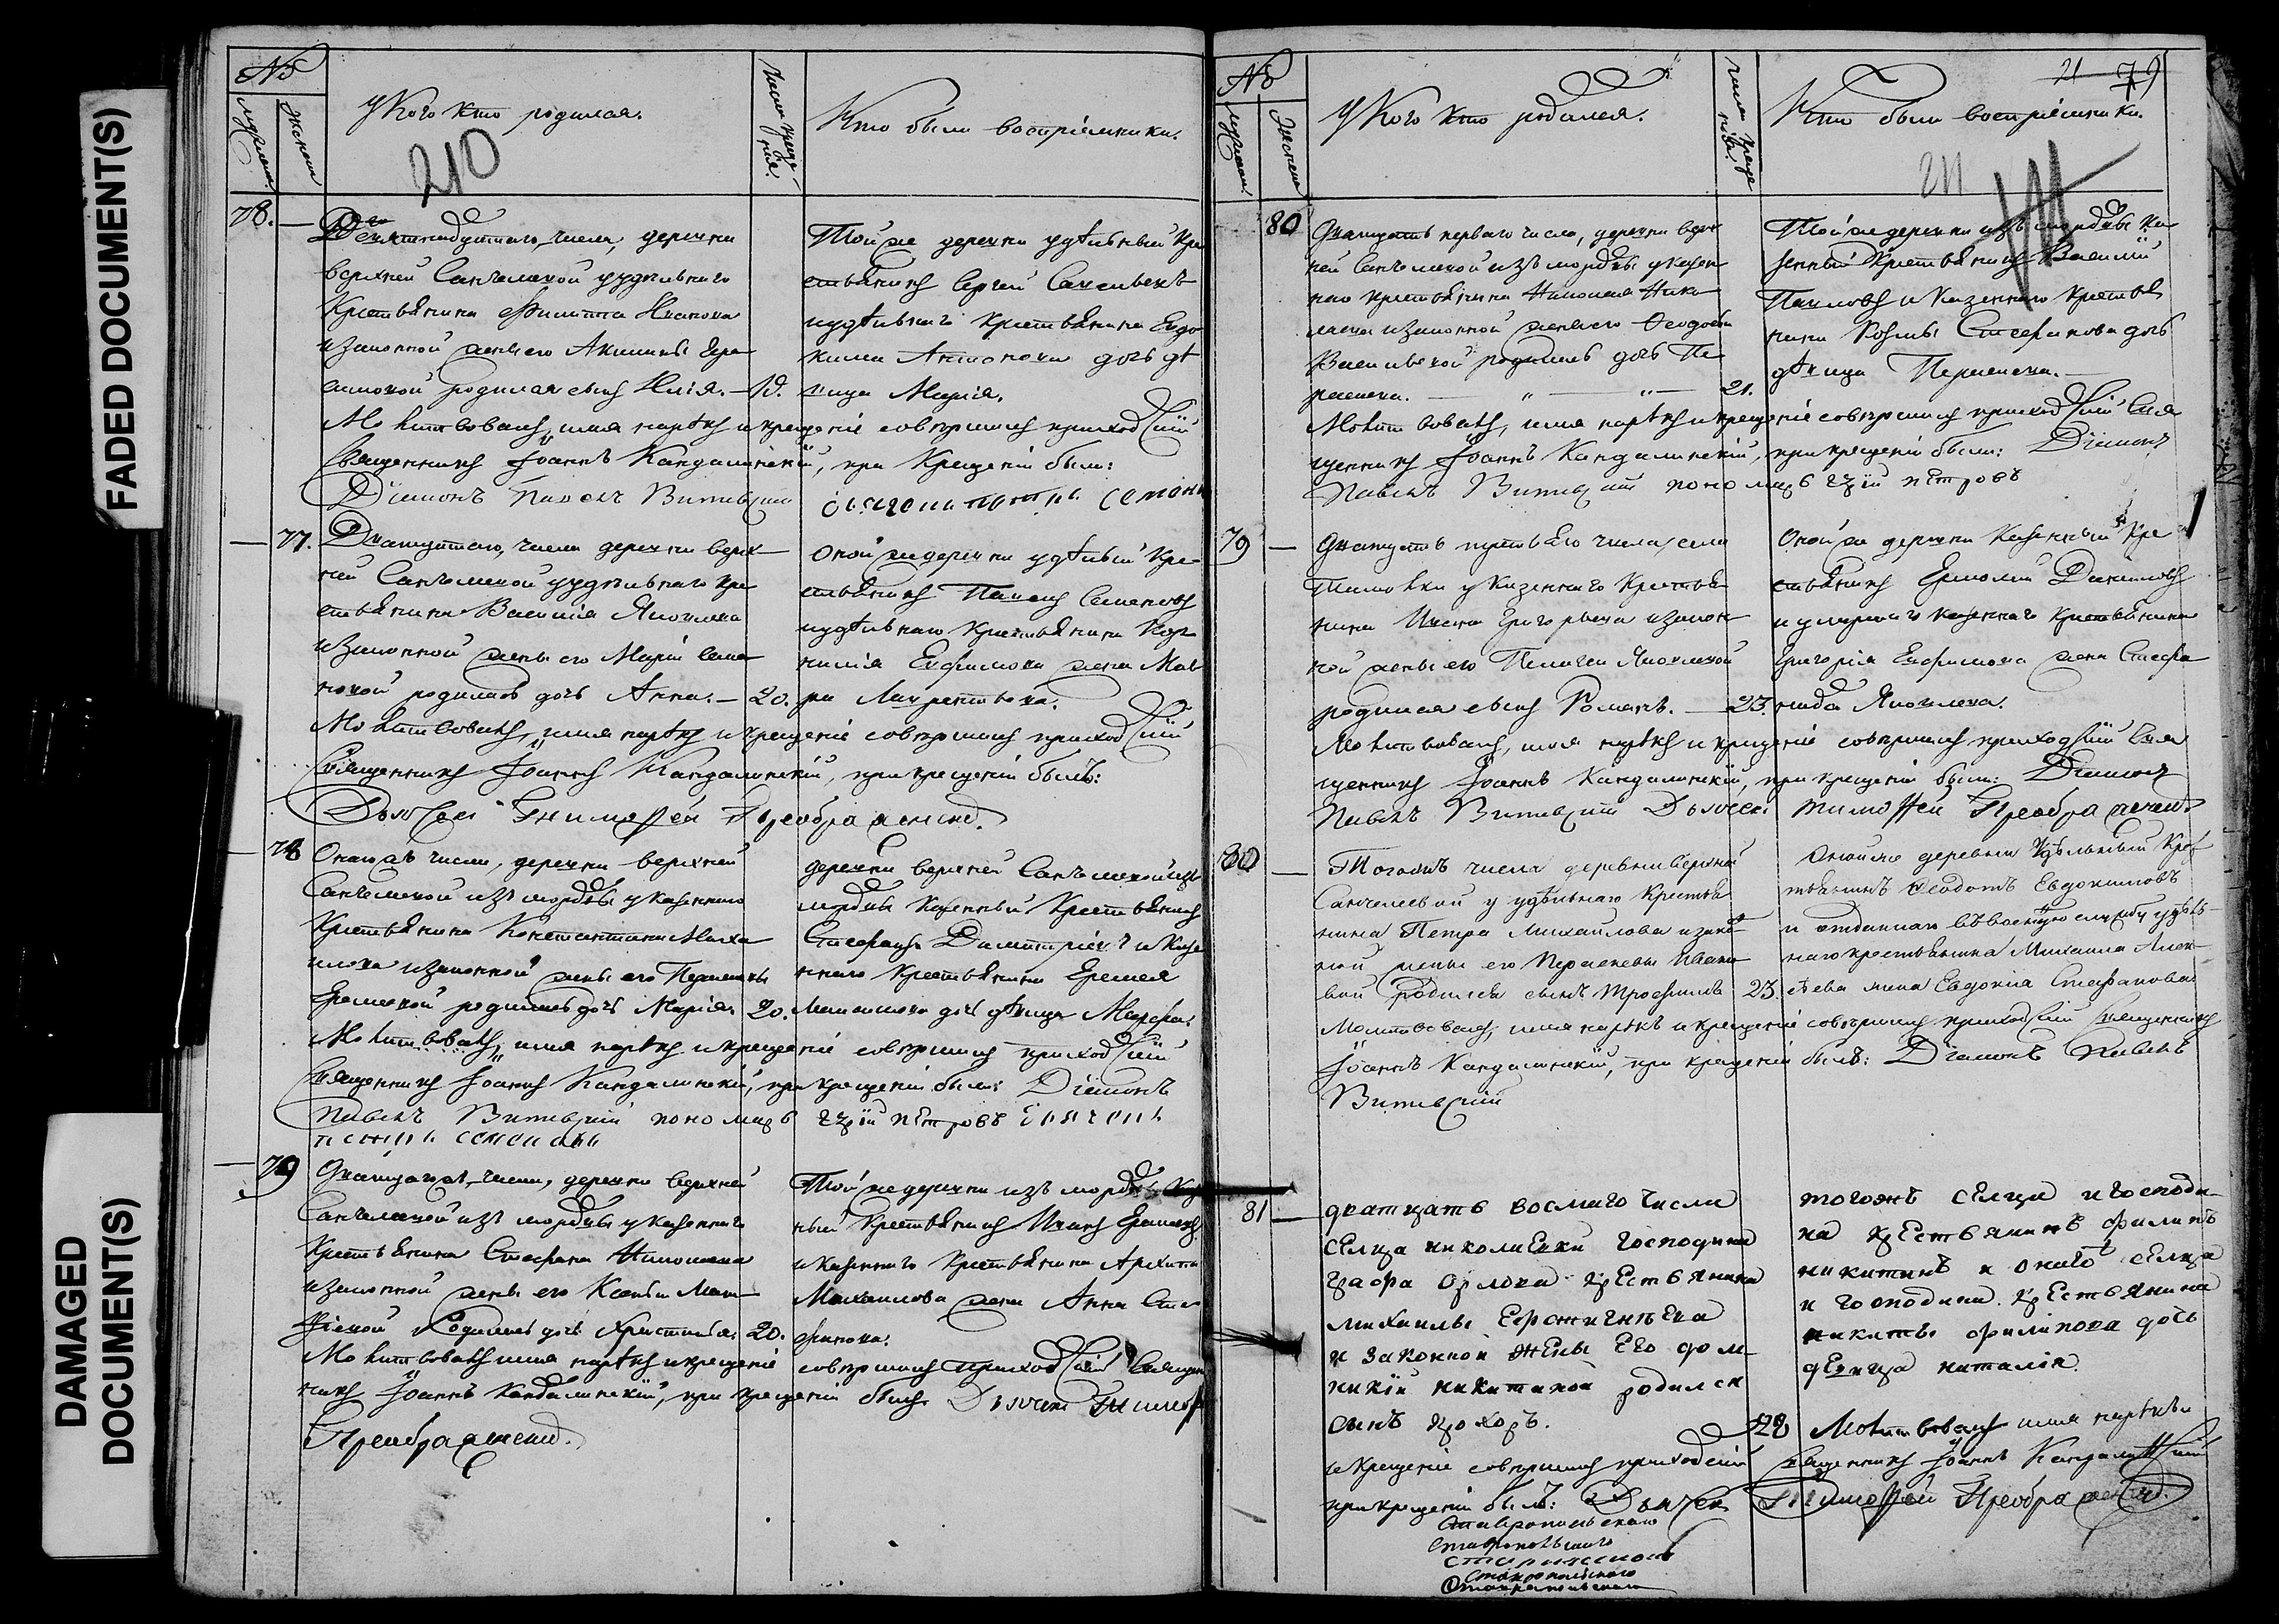 FADED DOCUMENT(S)
DAMAGED
DOCUMENT(S)
№
мужеска.
женска
У Кого кто родился.
210
Число креще-
нія.
Кто были воспріемники.
78. —
Девятнадцатаго, числа, деревни
верхней Санчелеевой у удѣльнаго
Крестьянина Филиппа Иванова
и законной жены его Акилины Гера
симовой родился сынъ Илія. — 19.
Той же деревни удѣльный Кре
стьянинъ Сергей Савельевъ
и удѣльнаго Крестьянина Евдо
кима Антонова дочь дѣ
вица Марія.
Молитвовалъ, имя нарѣкъ и крещеніе совершилъ приходскій
Священникъ Іоаннъ Кандалинскій, при Крещеніи были:
Діаконъ Павелъ Витевскій
— 77.
Двадцатаго, числа деревни верх-
ней Санчелеевой у удѣльнаго кре
стьянина Василія Яковлева
и законной жены его Маріи Семе
новой родилась дочь Анна. — 20.
Оной же деревни удѣльный Кре-
стьянинъ Павелъ Семеновъ
и удѣльнаго Крестьянина Кор
нилія Евфимова жена Мав
ра Лаврентьева.
Молитвовалъ, имя нарѣкъ и крещеніе совершилъ приходскій
Священникъ Іоаннъ Кандалинскій, при крещеніи былъ:
Дьячекъ Тимофей Преображенскій.
— 78
Онагожъ числа, деревни верхней
Санчелеевой изъ мордвы у казеннаго
Крестьянина Константина Миха
илова и законной жены его Параскевы
Еремеевой родилась дочь Марія. 20.
деревни верхней Санчелеевой изъ
мордвы Казенный Крестьянинъ
Стефанъ Димитріевъ и Казе
ннаго Крестьянина Еремея
дочь дѣвица Марфа.
Молитвовалъ, имя нарѣкъ и крещеніе совершилъ приходскій
Священникъ Іоаннъ Кандалинскій, при крещеніи были: Діаконъ
Павелъ Витевскій пономарь Петровъ
— 79
Двадцатагожъ числа, деревни верхней
Санчелеевой изъ мордвы у казеннаго
Крестьянина Стефана Николаева
и законной жены его Ксеніи Мат
фіевой Родилась дочь Христина. 20.
Той же деревни изъ мордвы
Крестьянинъ Иванъ
и казеннаго Крестьянина Архипа
Михаилова жена Анна Сте
фанова.
Молитвовалъ имя нарѣкъ и крещеніе совершилъ приходскій Священ
никъ Іоаннъ Кандалинскій, при крещеніи былъ Дьячекъ Тимофей
Преображенскій.
№
мужеска
женска
У Кого кто родился.
Число креще
нія.
Кто были воспріемники.
21 79
211
80
Двадцать перваго числа, деревни верх
ней Санчелеевой изъ мордвы у казен
наго крестьянина Николая Нико
лаева и законной жены его Феодосьи
Васильевой родилась дочь Па
раскева. — 21.
Той же деревни изъ мордвы Ка
зенный Крестьянинъ Василій
Павловъ и Казеннаго Крестья
нина Козьмы Стефанова дочь
дѣвица Параскева.
Молитвовалъ, имя нарѣкъ и крещеніе совершилъ приходскій Свя
щенникъ Іоаннъ Кандалинскій, при крещеніи были: Діаконъ
Павелъ Витевскій пономарь Петровъ
79 —
Двадцать третьяго числа, села
у Казеннаго Крестья
нина Ивана Григорьева и закон
ной жены его Пелагеи Яковлевой
родился сынъ Романъ. — 23.
Оной же деревни Казенный Кре
стьянинъ Ермолай Даниловъ
и умершаго казеннаго Крестьянина
Григорія Евфимова жена Стефа
нида Яковлева.
Молитвовалъ, имя нарѣкъ и крещеніе совершилъ приходскій Свя
щенникъ Іоаннъ Кандалинскій, при крещеніи были: Діаконъ
Павелъ Витевскій Дьячекъ Тимофей Преображенскій
80 —
Тогожъ числа деревни верхней
Санчелеевой у удѣльнаго Крестья
нина Петра Михаилова и зако
ной жены его Параскевы Ивано
вой родился сынъ Трофимъ 23.
Оной же деревни Удѣльный Крес
тьянинъ Феодотъ Евдокимовъ
и отданнаго въ военную службу удѣль
наго крестьянина Михаила Алек
сѣева жена Евдокія Стефанова
Молитвовалъ, имя нарѣкъ и крещеніе совершилъ приходскій Священникъ
Іоаннъ Кандалинскій, при крещеніи былъ: Діаконъ Павелъ
Витевскій
81 —
двадцать восмаго числа
селца николаевки господина
графа орлова крестьянина
михаилы
и законной жены его дом-
никіи никитиной родился
сынъ прохоръ. 28
тогожъ селца и господи-
на крестьянинъ филипъ
никитинъ и онаго селца
и господина крестьянина
никиты филипова дочь
девица наталія.
Молитвовалъ имя нарѣкъ
и крещеніе совершилъ приходскій Священникъ Іоаннъ Кандалинскій
при крещеніи былъ: Дьячекъ Тимофей Преображенскій.
Ставропольскаго
Ставропольскаго
Ставропольскаго
Ставропольскаго